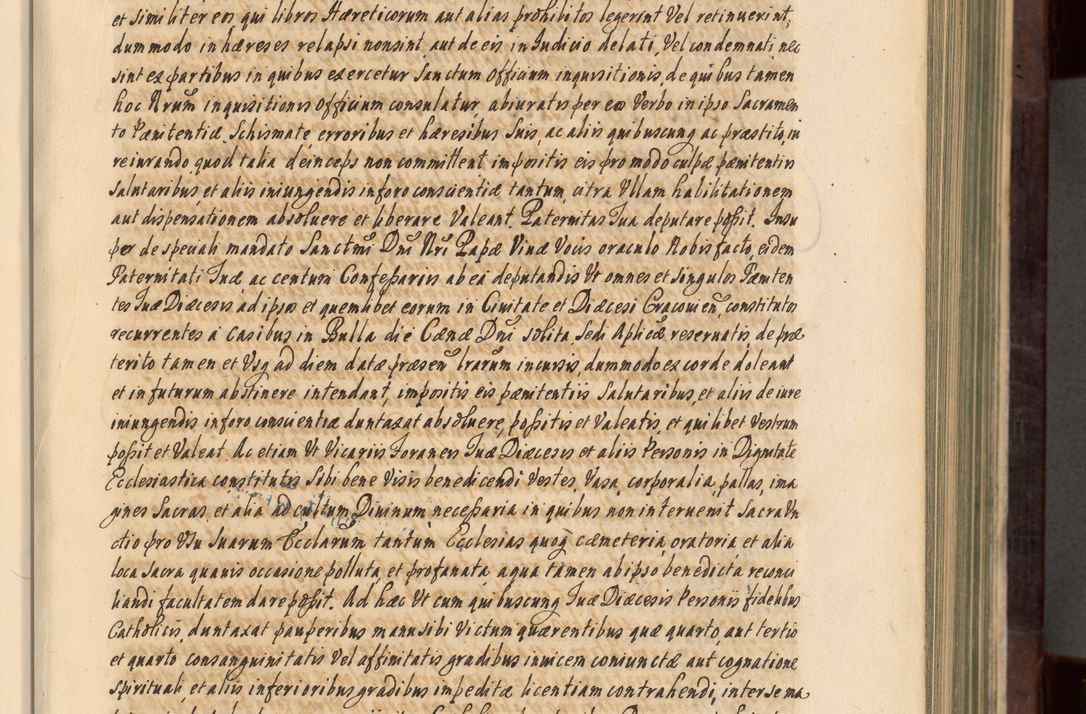 et similiter eos qui libros Hæreticorum aut alias prohibitos legerint Vel retinuerint,
dummodo in hæreses relapsi non sint aut de eis in Iudicio delati, Vel condemnati nec
sint ex partibus in quibus exercetur Sanctum Officium inquisitionis de quibus tamen
hoc Nrum inquisitionis Officium consulatur abiuratis per eos Verbo in ipso Sacramen
to Pænitentiæ Schismate erroribus et hæresibus Suis, ac aliis quibuscunq ac præstito, iu
reiurando quod talia deinceps non committent impositis eis pro modo culpæ pænitentiis
Salutaribus, et aliis iniungendis in foro conscientiæ tantum, citra Ullam habilitationem
aut dispensationem absoluere et liberare Valeant. Paternitas Tua deputare possit. Insu
per de speciali mandato Sanctmi Dni Nri Papæ Viuæ Vocis oraculo Nobis facto, eidem
Paternitati Tuæ ac centum Confessariis ab ea deputandis Vt omnes et singulos Pæniten
tes Tuæ Diæcesis ad ipsos et quemlibet eorum in Ciuitate et Diæcesi Cracouien, constitutos
recurrentes a Casibus in Bulla die Cænæ Dni solita Sedi Aplicæ reseruatis, de præ
terito tamen et Vsq ad diem datæ præsen lrarum incursis, dummodo ex corde doleant
et in futurum abstinere intendant, impositis eis pænitentiis Salutaribus, et aliis de iure
iniungendis in foro conscientiæ duntaxat absoluere, possitis et Valeatis, et quilibet Vestrum
possit et Valeat. Ac etiam Vt Vicariis Foraneis Tuæ Diæcesis et aliis Personis in Dignitate
Ecclesiastica constitutis Sibi bene Visis benedicendi Vestes, Vasa, corporalia, pallas, ima
gines Sacras, et alia ad cultum Diuinum necessaria in quibus non interuenit Sacra Vn
ctio pro Vsu Suarum Ecclarum tantum Ecclesias quoq cæmeteria, oratoria et alia
loca Sacra quauis occasione polluta, et profanata aqua tamen ab ipso benedicta reconci
liandi facultatem dare possit. Ad hæc Vt cum quibuscunq Tuæ Diæcesis Personis fidelibus
Catholicis, duntaxat pauperibus manu sibi Victum quærentibus quæ quarto, aut tertio
et quarto consanguinitatis Vel affinitatis gradibus inuicem coniunctæ aut cognatione
Spirituali, et aliis inferioribus gradibus impeditæ licentiam contrahendi, inter se ma